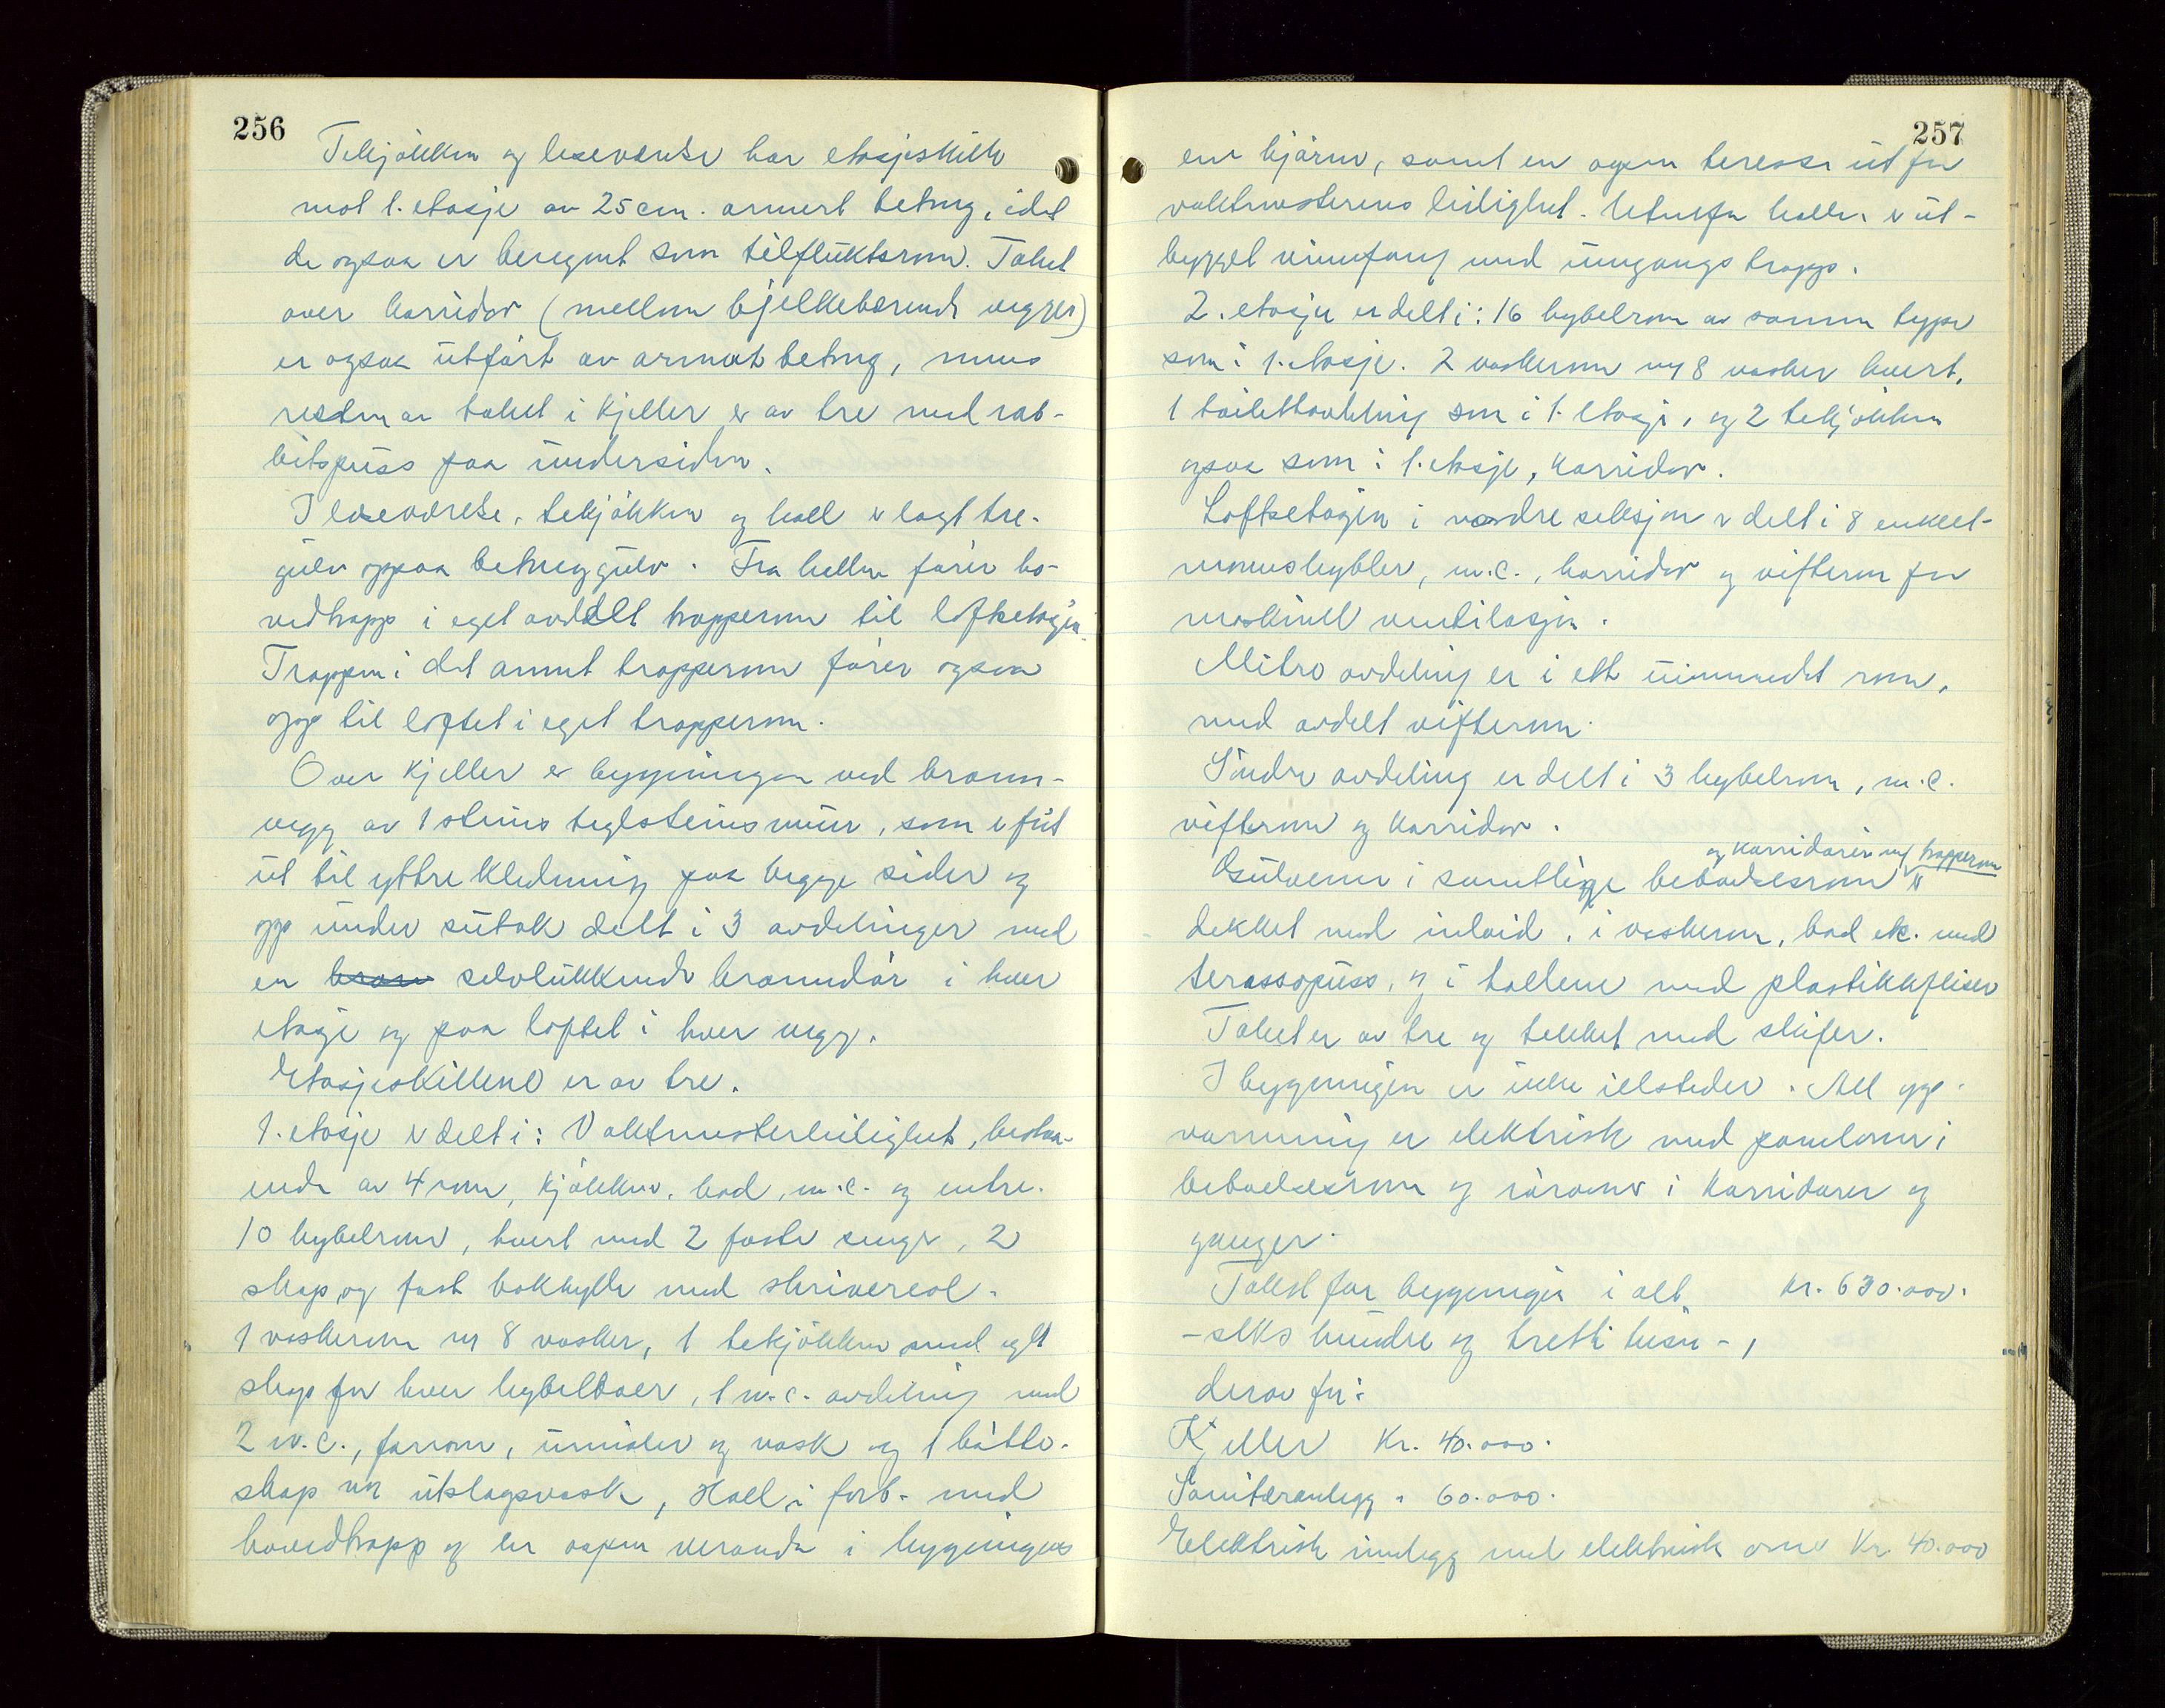 256
Tekjökken og leseværelse har etasjeskille
mot 1. etasje av 25 cm. armert betong, idet
de ogsaa er beregnet som tilfluktsrom. Taket
over korridor (mellom bjelkebærende vegger)
er ogsaa utfört av armert betong, mens
resten av taket i kjeller er av tre med rab-
bitspuss paa undersiden.
I leseværelse, tekjökken og hall er lagt tre-
gulv oppaa betonggulv. Fra hallen förer ho-
vedtrapp i eget avdelt trapperom til loftsetasjen.
Trappen i det annet trapperom förer ogsaa
opp til loftet i eget trapperom.
Over kjeller er bygningen ved brann-
vegg av 1 steins teglsteinsmur, som er fört
ut til yttre kledning paa begge sider og
opp under sutak delt i 3 avdelinger med
en selvlukkende branndör i hver
etasje og paa loftet i hver vegg.
Etasjeskillene er av tre.
1. etasje er delt i: Vaktmesterleilighet, bestaa-
ende av 4 rom, kjökken, bad, w.c. og entre.
10 hybelrom, hvert med 2 faste senger, 2
skap, og fast bokhylle med skrivereol.
1 vaskerom m/ 8 vasker, 1 tekjökken med eget
skap for hver hybelboer, 1 w.c. avdeling med
2 w.c., forrom, urinaler og vask og 1 bötte-
skap m/ utslagsvask, Hall i forb. med
hovedtrapp og en aapen veranda i bygningens
257
ene hjörne, samt en aapen terasse ut for
vaktmesterens leilighet. Utenfor hallen er ut-
bygget vinnfang med inngangs trapp.
2. etasje er delt i: 16 hybelrom av samme type
som i 1. etasje. 2 vaskerom m/ 8 vasker hvert,
1 toilettavdeling som i 1. etasje, og 2 tekjökken
ogsaa som i 1. etasje, korridor.
Loftsetasjen i nordre seksjon er delt i 8 enkelt-
mannshybler, w.c., korridor og vifterom for
maskinell ventilasjon.
Mitre avdeling er i ett uinnredet rom,
med avdelt vifterom.
Söndre avdeling er delt i 3 hybelrom, w.c.
vifterom og korridor.
og korridorer m/ trapperom
Gulvene i samtlige beboelsesrom er
dekket med inlaid, i vaskerom, bad etc. med
terassopuss, og i hallene med plastikkfliser
Taket er av tre og tekket med skifer.
I bygningen er ikke ildsteder. All opp-
varming er elektrisk med panelovner i
beboelsesrom og rörovner i korridorer og
ganger.
Takst for bygningen i alt kr. 630.000.
- seks hundre og tretti tusen -,
derav for:
Kjeller Kr. 40.000.
Sanitæranlegg " 60.000.
Elektrisk innlegg med elektrisk ovne Kr. 40.000